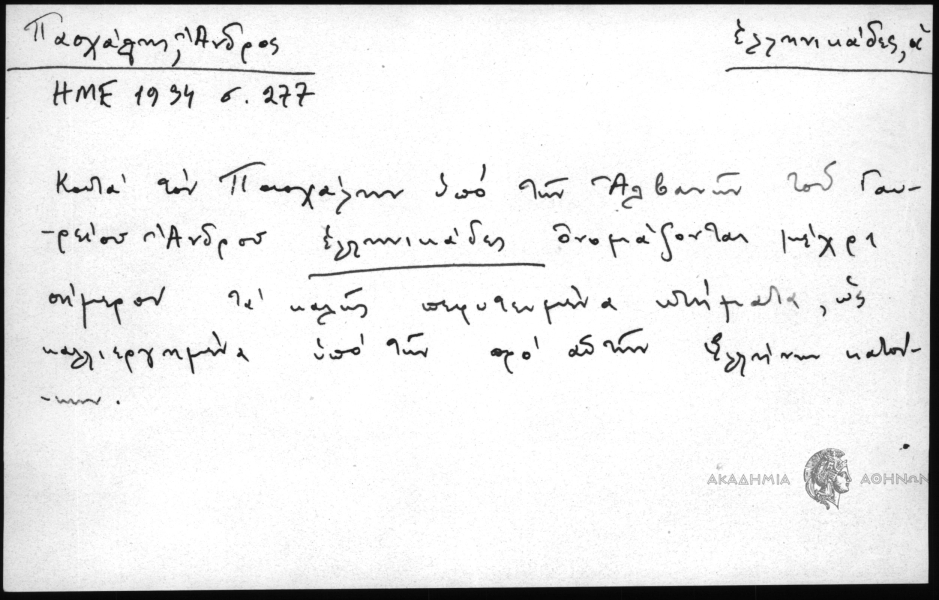 Πασχάλης, Ἄνδρος
Ἑλληνικάδες, ἁ
ΗΜΕ 1934 σ. 277
Κατὰ τὸν Πασχάλην ὑπὸ τῶν Ἀλβανῶν τοῦ Γαυ-
-ρείου Ἄνδρου Ἑλληνικάδες ὀνομάζονται μέχρι
σήμερον τὰ καλῶς πεφυτευμένα κτήματα, ὡς
καλλιεργημένα ὑπὸ τῶν πρὸ αὐτῶν Ἑλλήνων κατοί-
-κων.
ΑΚΑΔΗΜΙΑ ΑΘΗΝΩΝ